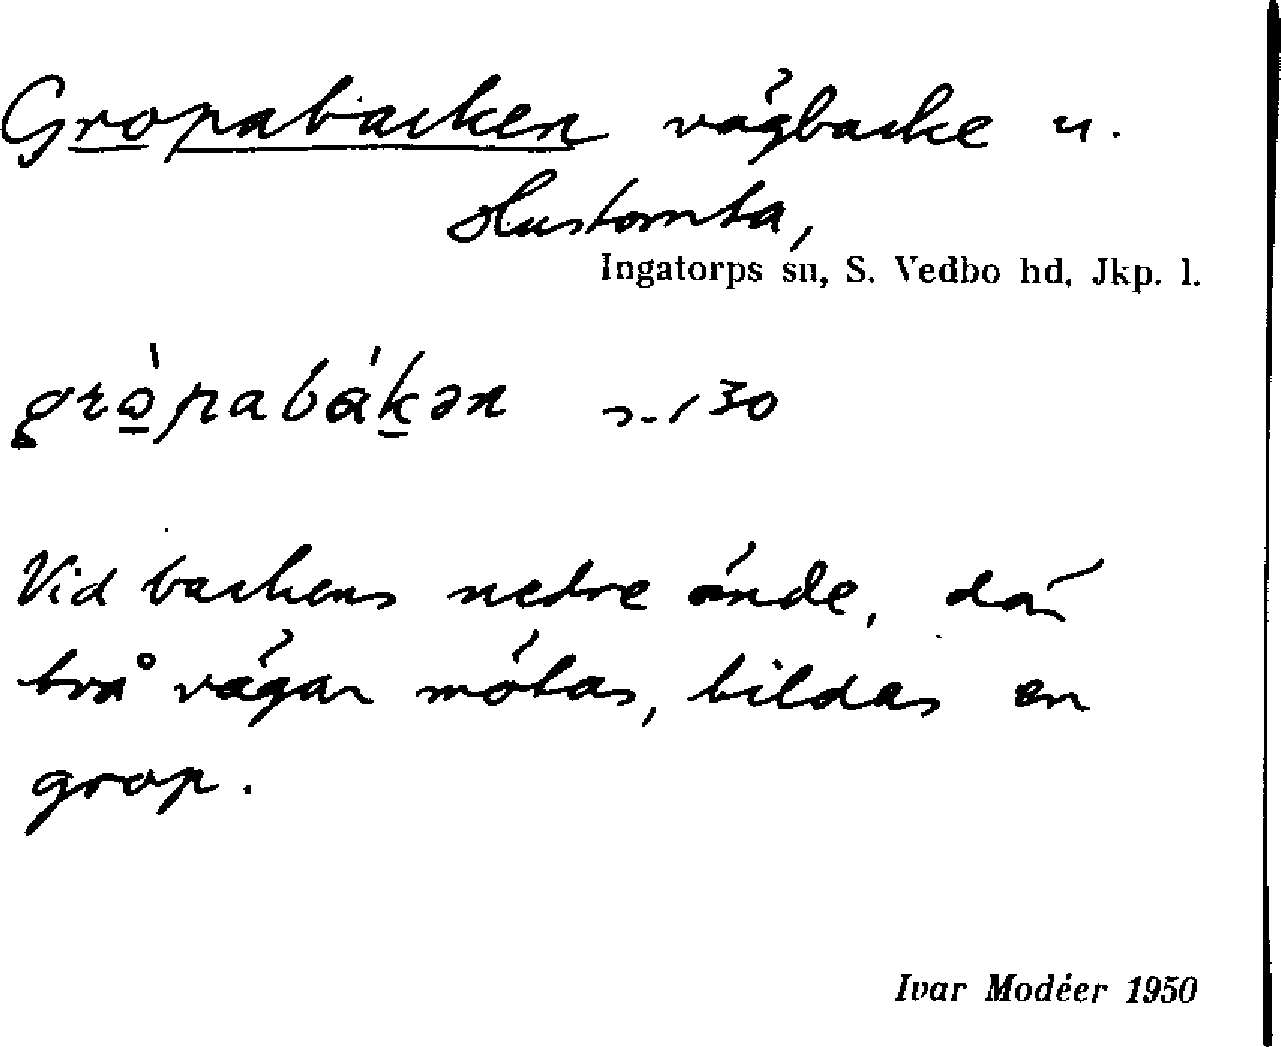 Gropabacken vägbacke u.
Hustomta,
Ingatorps sn, S. Vedbo hd, Jkp. l.
grò̠pabák̠ən
30
Vid backens nedre ände, där
två vägar mötas, bildas en
grop.
Ivar Modéer 1950